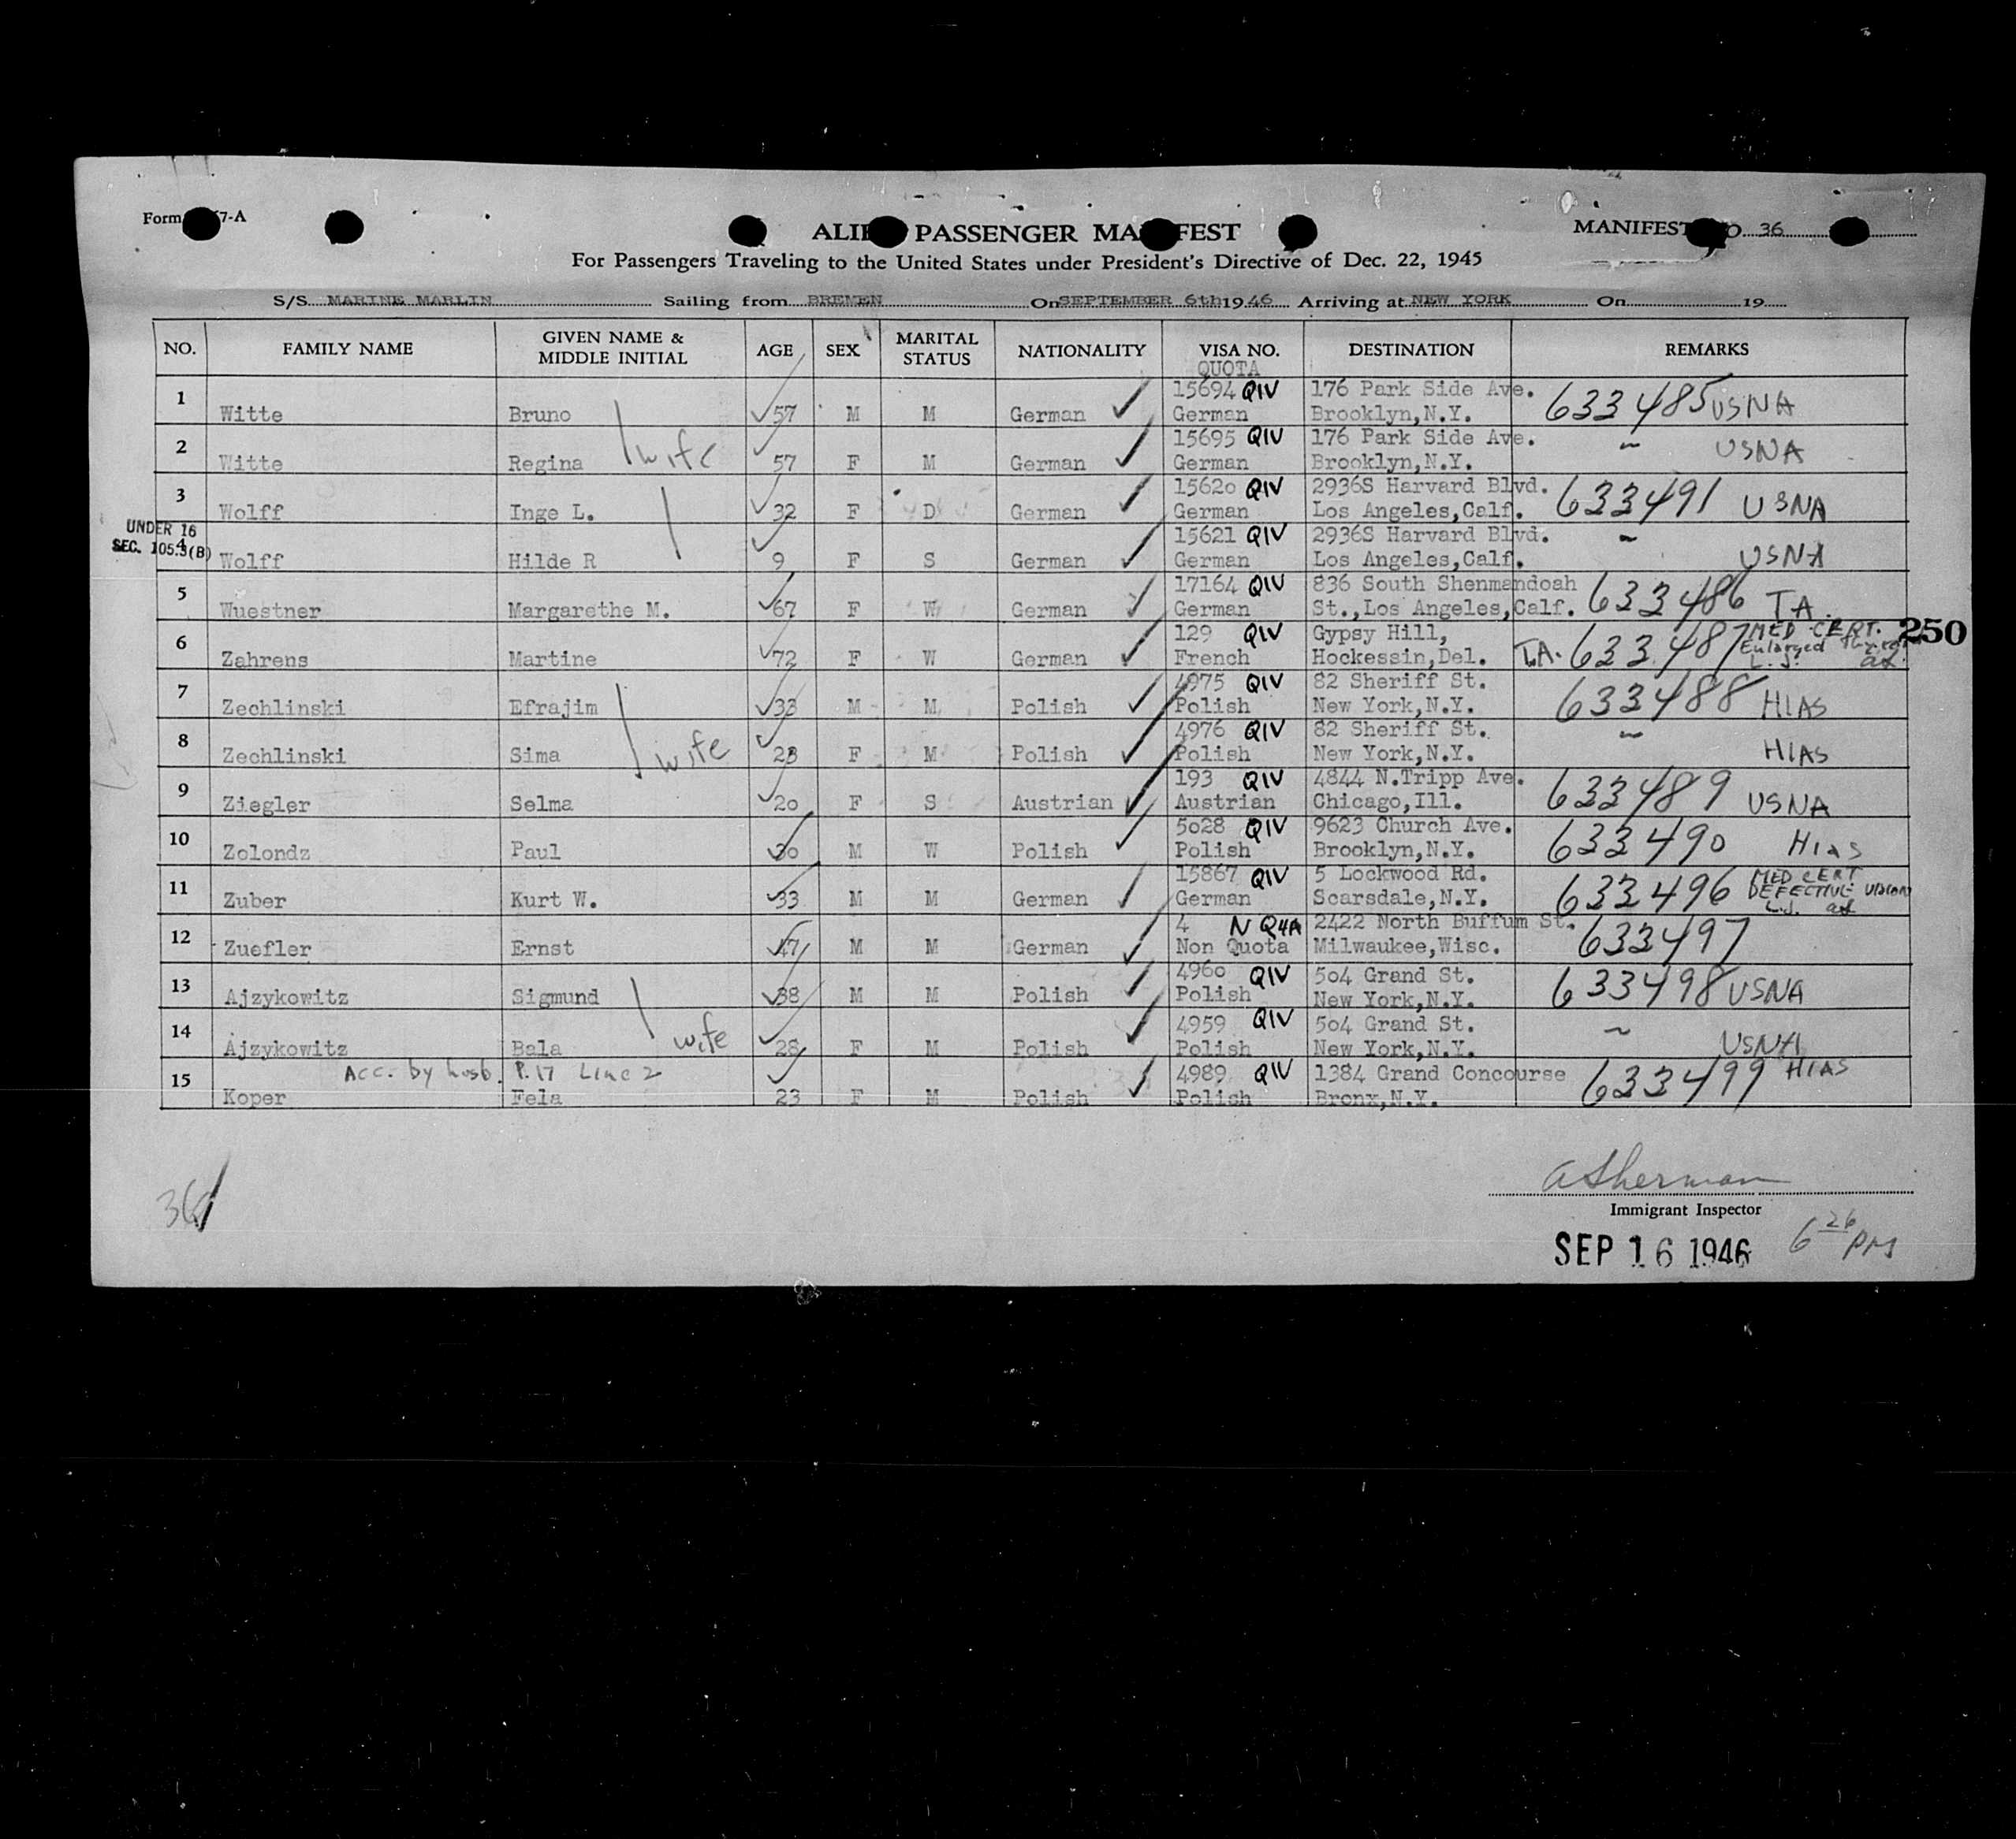 Form 7-A
ALIEN PASSENGER MANIFEST
MANIFEST NO. 36
For Passengers Traveling to the United States under President's Directive of Dec. 22, 1945
S/S MARINE MARLIN Sailing from BREMEN On SEPTEMBER 6th 1946 Arriving at NEW YORK On 19
NO. FAMILY NAME GIVEN NAME & MIDDLE INITIAL AGE SEX MARITAL STATUS NATIONALITY VISA NO. QUOTA DESTINATION REMARKS
1 15694 QIV 176 Park Side Ave.
Witte Bruno 57 M M German German Brooklyn,N.Y. 633485 USNA
2 15695 QIV 176 Park Side Ave. ~
Witte Regina wife 57 F M German German Brooklyn,N.Y. USNA
3 15620 QIV 2936S Harvard Blvd.
Wolff Inge L. 32 F D German German Los Angeles,Calf. 633491 USNA
UNDER 16
SEC. 105.3(B)
4 15621 QIV 2936S Harvard Blvd. ~
Wolff Hilde R 9 F S German German Los Angeles,Calf. USNA
5 17164 QIV 836 South Shenmandoah
Wuestner Margarethe M. 67 F W German German St.,Los Angeles,Calf. 633486 TA
6 129 QIV Gypsy Hill, MED CERT. 250
Zahrens Martine 72 F W German French Hockessin,Del. T.A. 633487 Enlarged L.J.
7 4975 QIV 82 Sheriff St.
Zechlinski Efrajim 33 M M Polish Polish New York,N.Y. 633488 HIAS
8 4976 QIV 82 Sheriff St. ~
Zechlinski Sima wife 28 F M Polish Polish New York,N.Y. HIAS
9 193 QIV 4844 N.Tripp Ave.
Ziegler Selma 20 F S Austrian Austrian Chicago,Ill. 633489 USNA
10 5028 QIV 9623 Church Ave.
Zolondz Paul 30 M W Polish Polish Brooklyn,N.Y. 633490 Hias
11 15867 QIV 5 Lockwood Rd. MED CERT
Zuber Kurt W. 33 M M German German Scarsdale,N.Y. 633496 DEFECTIVE VISION L.J.
12 4 N Q4A 2422 North Buffum St.
Zuefler Ernst 47 M M German Non Quota Milwaukee,Wisc. 633497
13 4960 QIV 504 Grand St.
Ajzykowitz Sigmund 38 M M Polish Polish New York,N.Y. 633498 USNA
14 4959 QIV 504 Grand St. ~
Ajzykowitz Bala wife 28 F M Polish Polish New York,N.Y. USNA
Acc. by husb. P.17 Line 2
15 4989 QIV 1384 Grand Concourse HIAS
Koper Fela 23 F M Polish Polish Bronx,N.Y. 633499
36
ASherman
Immigrant Inspector
SEP 16 1946 6 26 PM